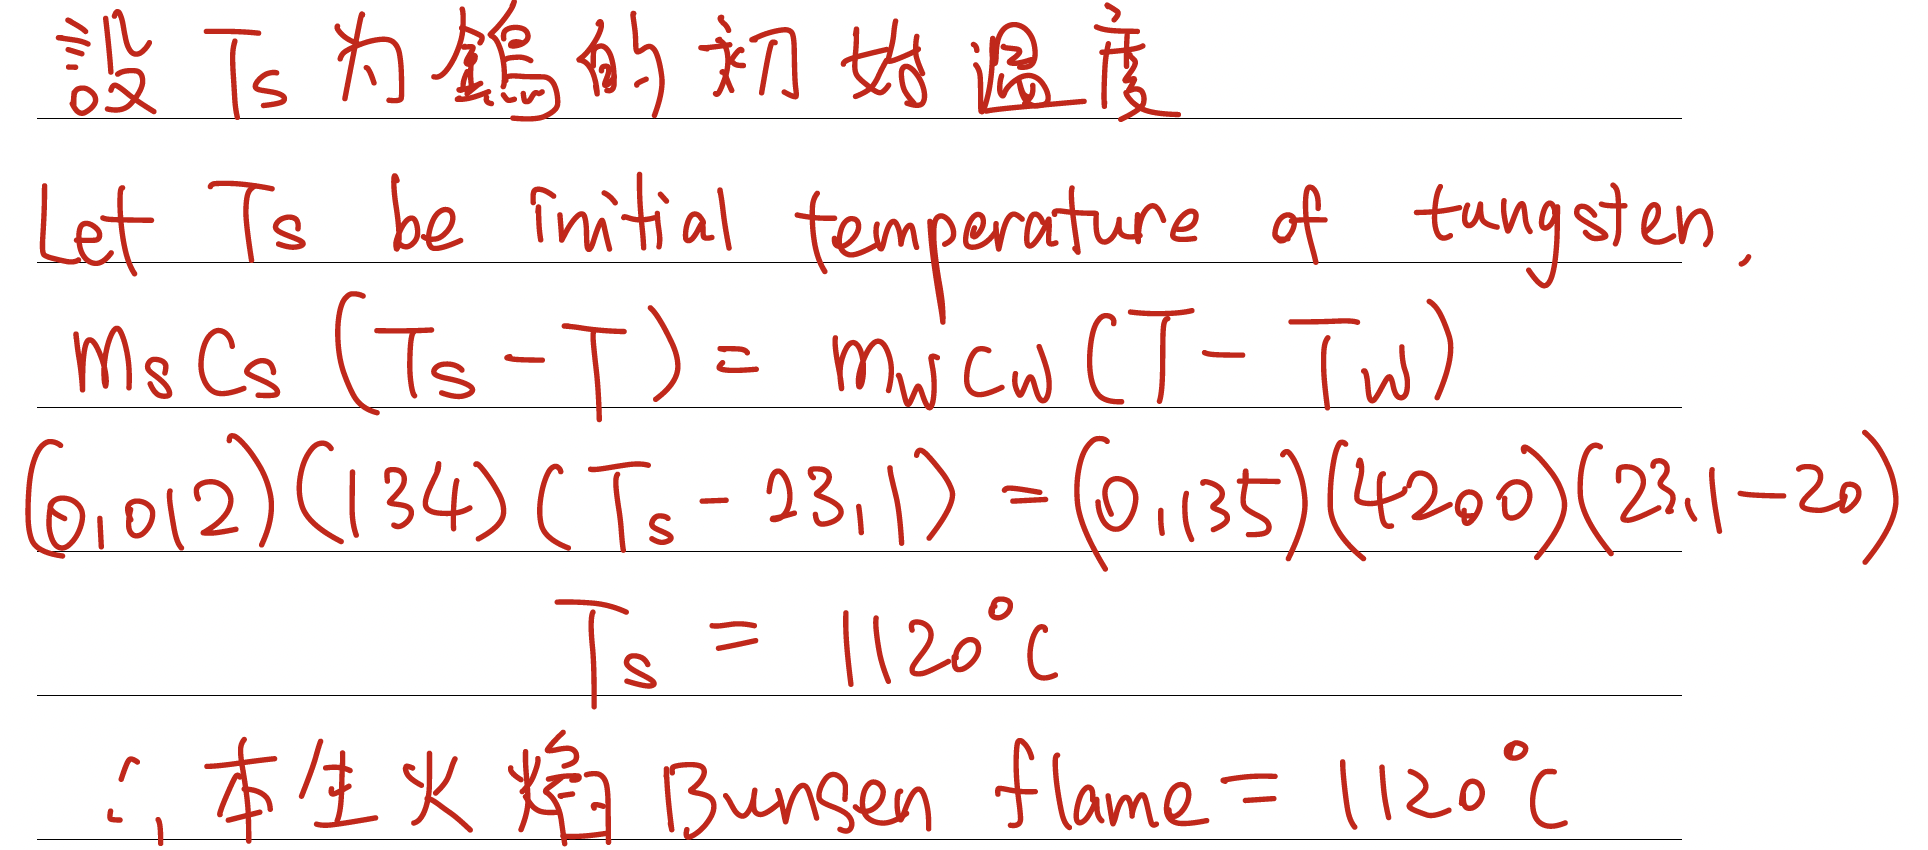 設 Ts 為鎢的初始溫度
Let Ts be initial temperature of tungsten.
msCs (Ts - T) = mwcw (T - Tw)
(0.012)(134)(Ts - 23.1) = (0.135)(4200)(23.1-20)
Ts = 1120°C
∴ 本生火焰 Bunsen flame = 1120°C